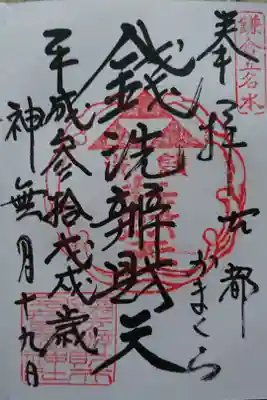 鎌倉五名水
奉拝
古都
かまくら
錢洗辨財天
平成参拾戊戌歳
神無月十九日